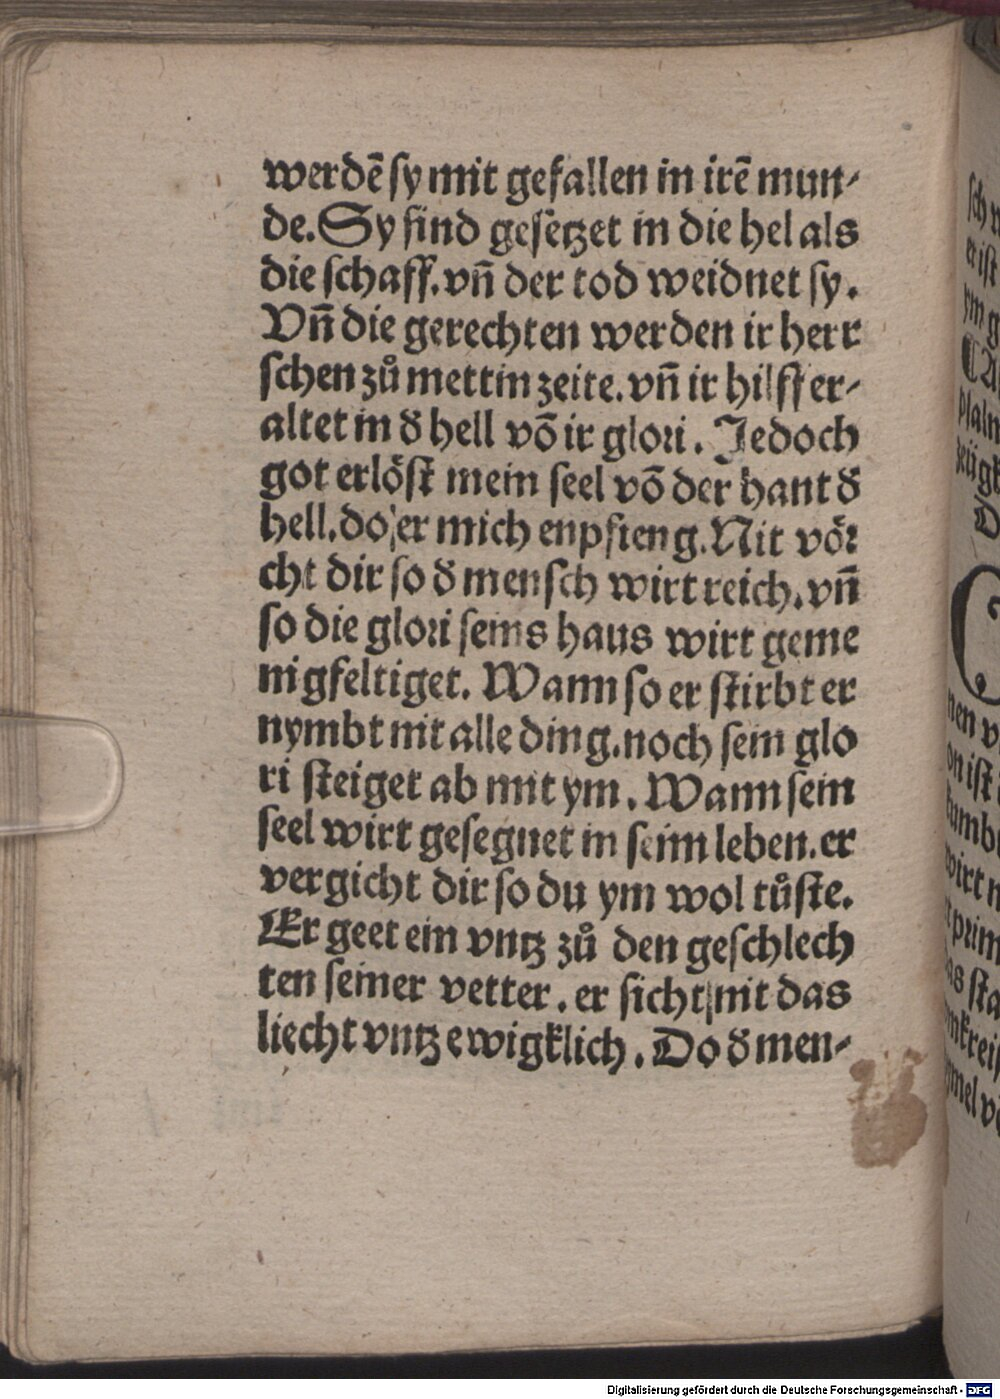 werdē ſy mit gefallen in irē mun-
de. Sy ſind geſetzet in die hel als
die ſchaff. vn̄ der tod weidnet ſy.
Vn̄ die gerechten werden ir herr
ſchen zů mettin zeite. vn̄ ir hilff er-
altet in ð hell vō ir glori. Jedoch
got erlöſt mein ſeel vō der hant ð
hell. do er mich enpfieng. Nit vör
cht dir ſo ð menſch wirt reich. vn̄
ſo die glori ſeins haus wirt geme
nigfeltiget. Wann ſo er ſtirbt er
nymbt nit alle ding. noch ſein glo
ri ſteiget ab mit ym. Wann ſein
ſeel wirt geſegnet in ſeim leben. er
vergicht dir ſo du ym wol tůſte.
Er geet ein vntz zů den geſchlech
ten ſeiner vetter. er ſicht nit das
liecht vntz ewigklich. Do ð men-
Digitalisierung gefördert durch die Deutsche Forschungsgemeinschaft - DFG